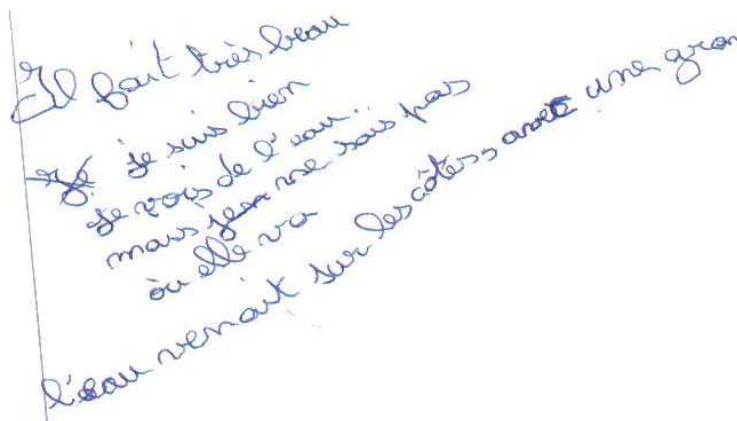 Il fait très beau
je suis bien
je vois de l'eau..
mais je ne sais pas
où elle va
l'eau venait sur les côtés, avec une gran